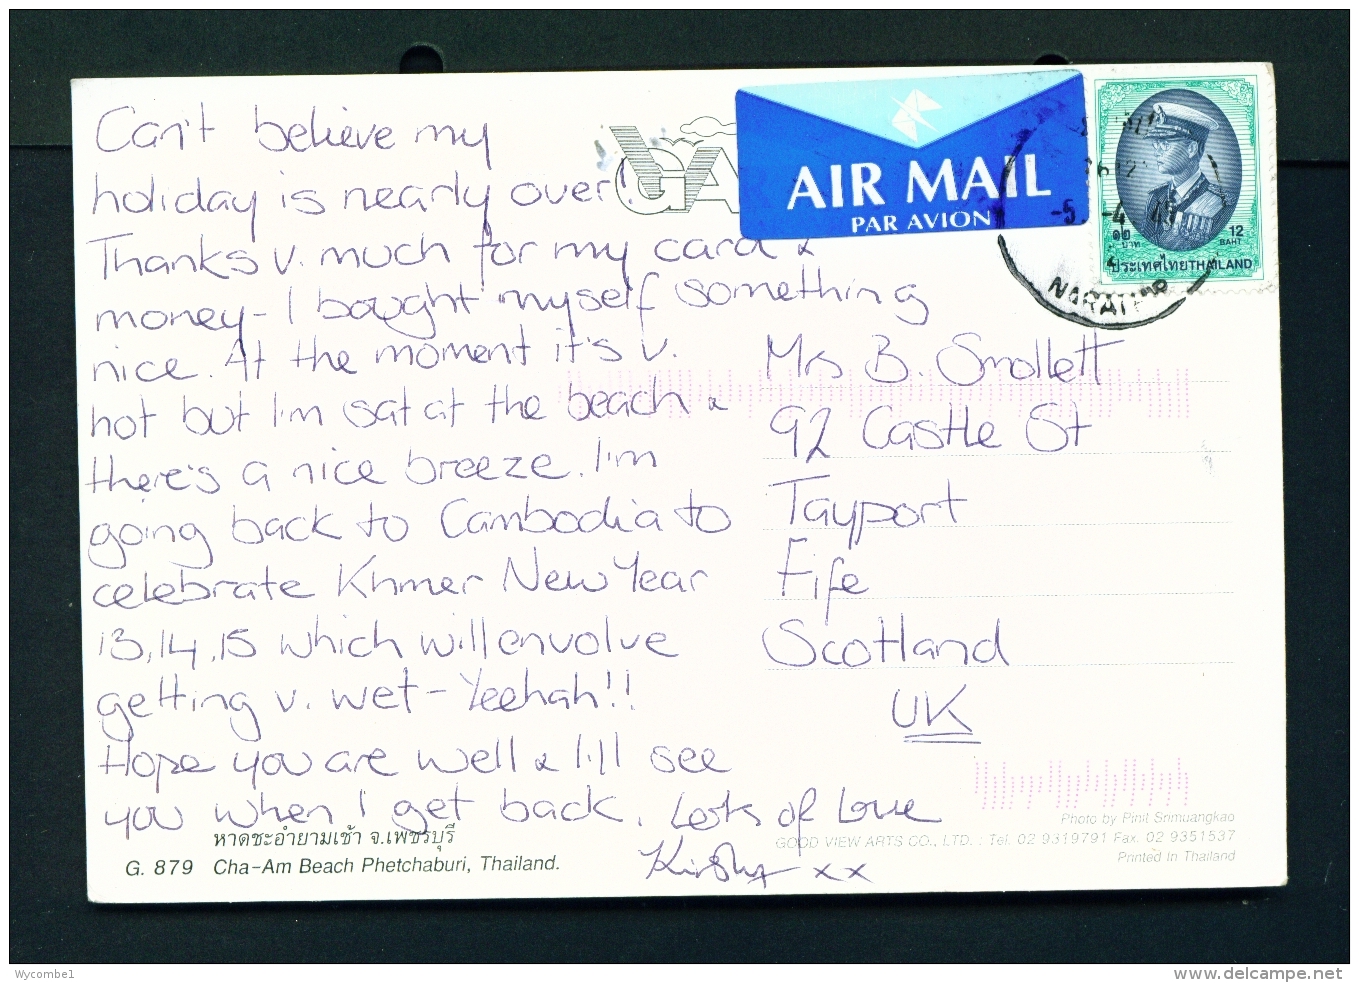 Can't believe my
holiday is nearly over!
Thanks v. much for my card &
money - I bought myself something
nice. At the moment it's v.
hot but I'm sat at the beach &
there's a nice breeze. I'm
going back to Cambodia to
celebrate Khmer New Year
13,14,15 which will envolve
getting v. wet - Yeehah!!
Hope you are well & I'll see
you when I get back. Lots of Love
Kirsty xx
AIR MAIL
PAR AVION
๑๒
บาท
12
BAHT
ประเทศไทย THAILAND
-5 -4
Mrs B. Smollett
92 Castle St
Tayport
Fife
Scotland
UK
หาดชะอำยามเช้า จ.เพชรบุรี
G. 879 Cha-Am Beach Phetchaburi, Thailand.
Photo by Pinit Srimuangkao
GOOD VIEW ARTS CO., LTD. : Tel. 02 9319791 Fax. 02 9351537
Printed In Thailand
Wycombe1
www.delcampe.net